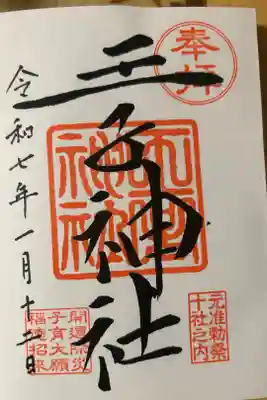 奉拝
王子神社
王子
神社
元准勅祭
十社之内
開運除災
子育大願
福徳招来
令和七年一月十二日